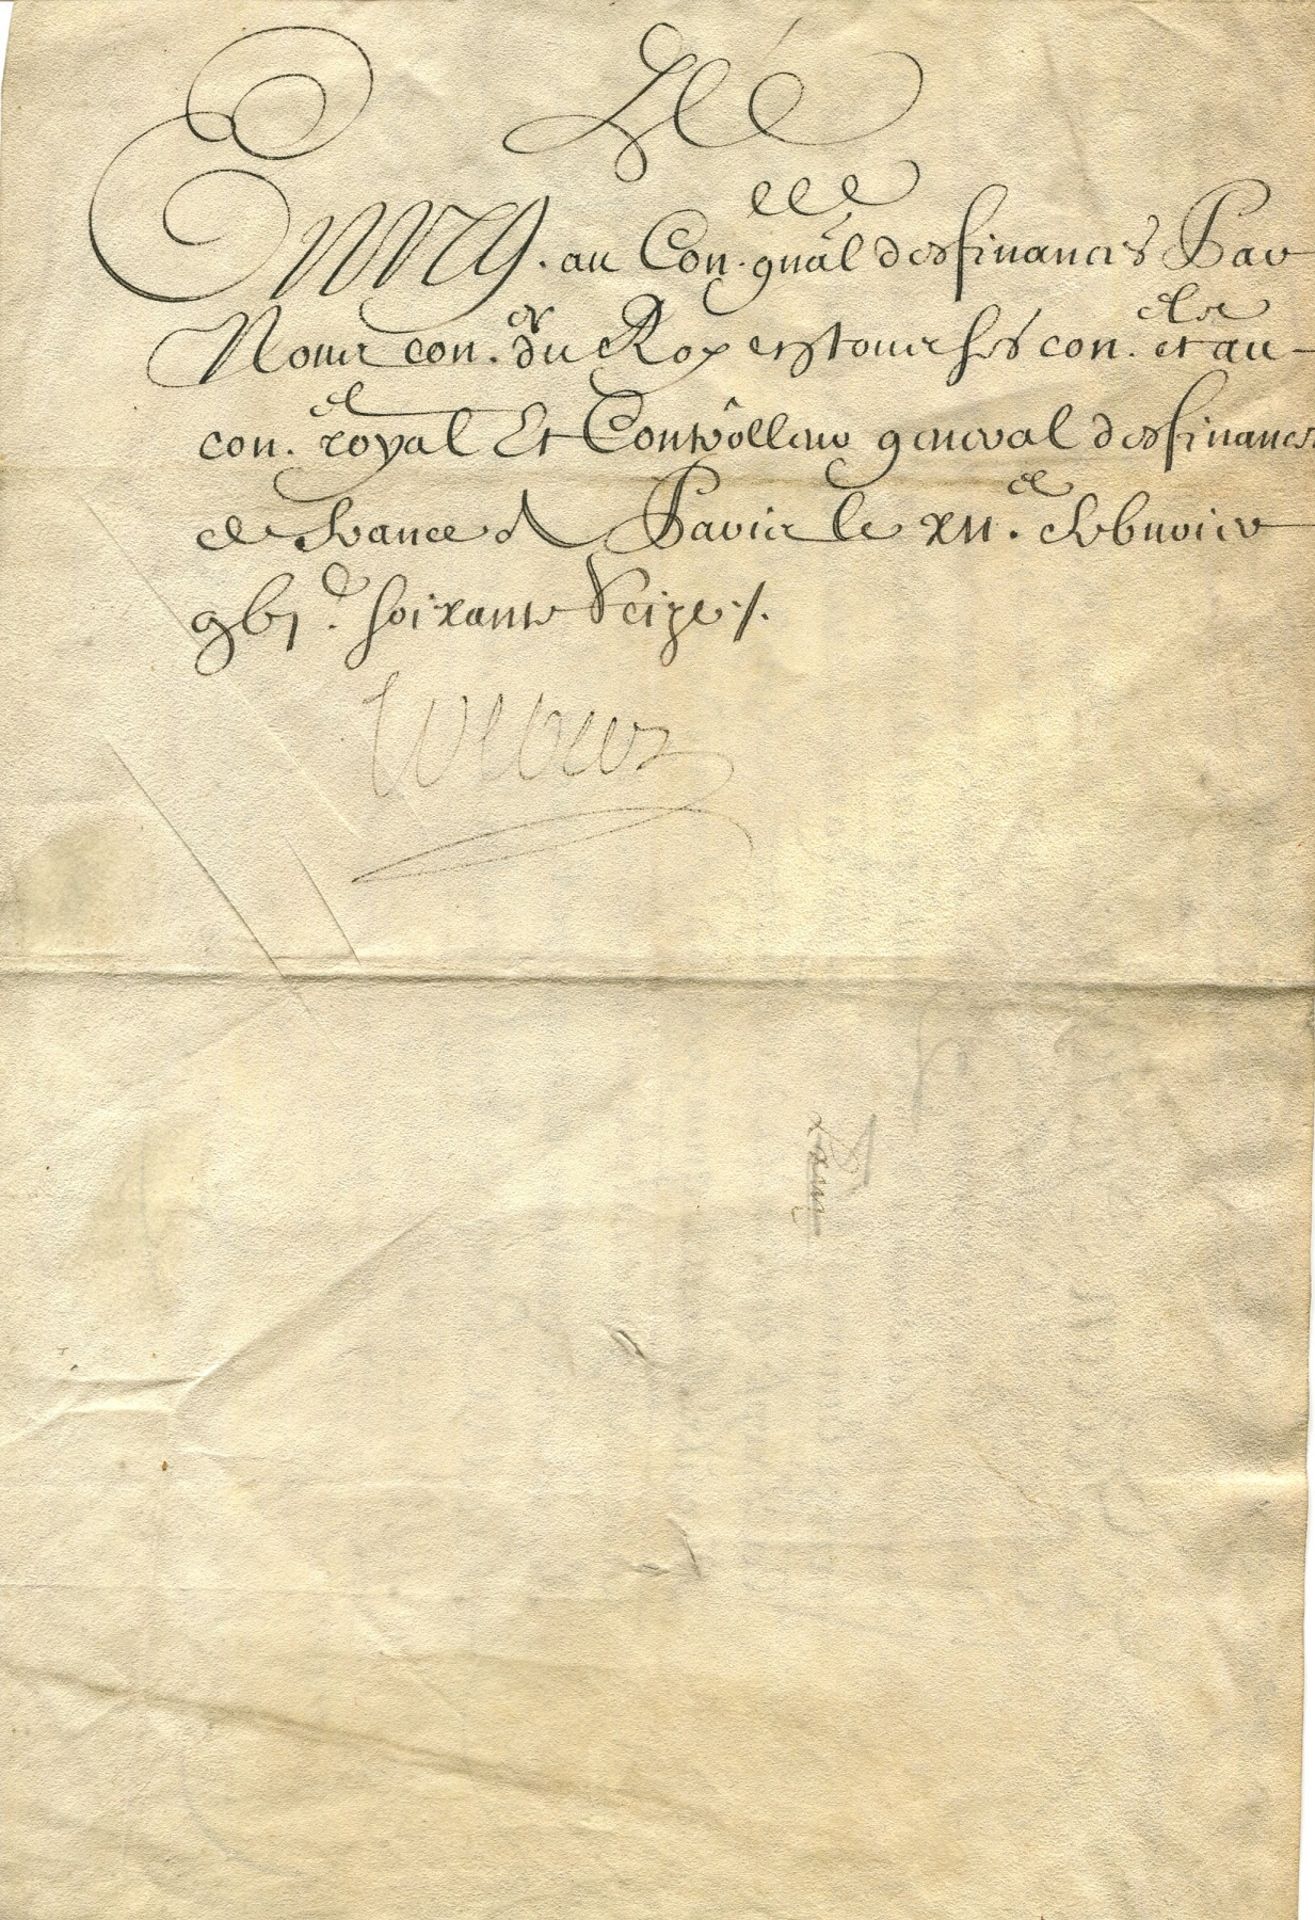 Enreg.ᵉᵉ au Con.ᵉˡˡᵉ gnâl des finances Par
Nous con.ᵉʳ du Roy en tous ses con.ᵉˡˢ et au
con.ᵉˡ royal Et Contrôlleur general des finances
de france A Paris le xii.ᵉ febvrier
gbj.ᶜ soixante Seize ./.
Colbert